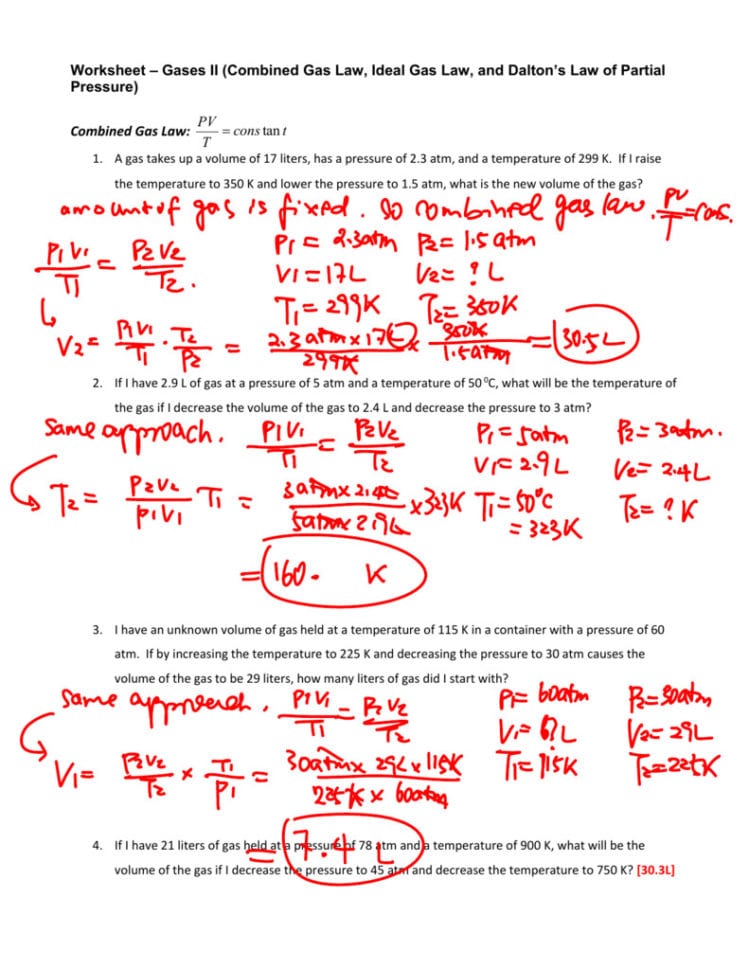 Worksheet – Gases II (Combined Gas Law, Ideal Gas Law, and Dalton's Law of Partial
Pressure)
Combined Gas Law: PV/T = cons tan t
1. A gas takes up a volume of 17 liters, has a pressure of 2.3 atm, and a temperature of 299 K. If I raise
the temperature to 350 K and lower the pressure to 1.5 atm, what is the new volume of the gas?
amount of gas is fixed. So combined gas law. PV/T = cons.
P1V1/T1 = P2V2/T2. P1 = 2.3atm P2 = 1.5 atm
V1 = 17L V2 = ? L
T1 = 299K T2 = 350K
V2 = P1V1/T1 · T2/P2 = 2.3 atm x 17L/299K x 350K/1.5atm = 30.5L
2. If I have 2.9 L of gas at a pressure of 5 atm and a temperature of 50 °C, what will be the temperature of
the gas if I decrease the volume of the gas to 2.4 L and decrease the pressure to 3 atm?
Same approach. P1V1/T1 = P2V2/T2 P1 = 5atm P2 = 3atm.
V1 = 2.9L V2 = 2.4L
T2 = P2V2/P1V1 T1 = 3atm x 2.4L/5atm x 2.9L x 323K T1 = 50°C T2 = ? K
= 323K
= 160. K
3. I have an unknown volume of gas held at a temperature of 115 K in a container with a pressure of 60
atm. If by increasing the temperature to 225 K and decreasing the pressure to 30 atm causes the
volume of the gas to be 29 liters, how many liters of gas did I start with?
Same approach. P1V1/T1 = P2V2/T2 P1 = 60atm P2 = 30atm
V1 = ? L V2 = 29L
V1 = P2V2/T2 x T1/P1 = 30atm x 29L x 115K/225K x 60atm T1 = 115K T2 = 225K
= 7.4 L
4. If I have 21 liters of gas held at a pressure of 78 atm and a temperature of 900 K, what will be the
volume of the gas if I decrease the pressure to 45 atm and decrease the temperature to 750 K? [30.3L]